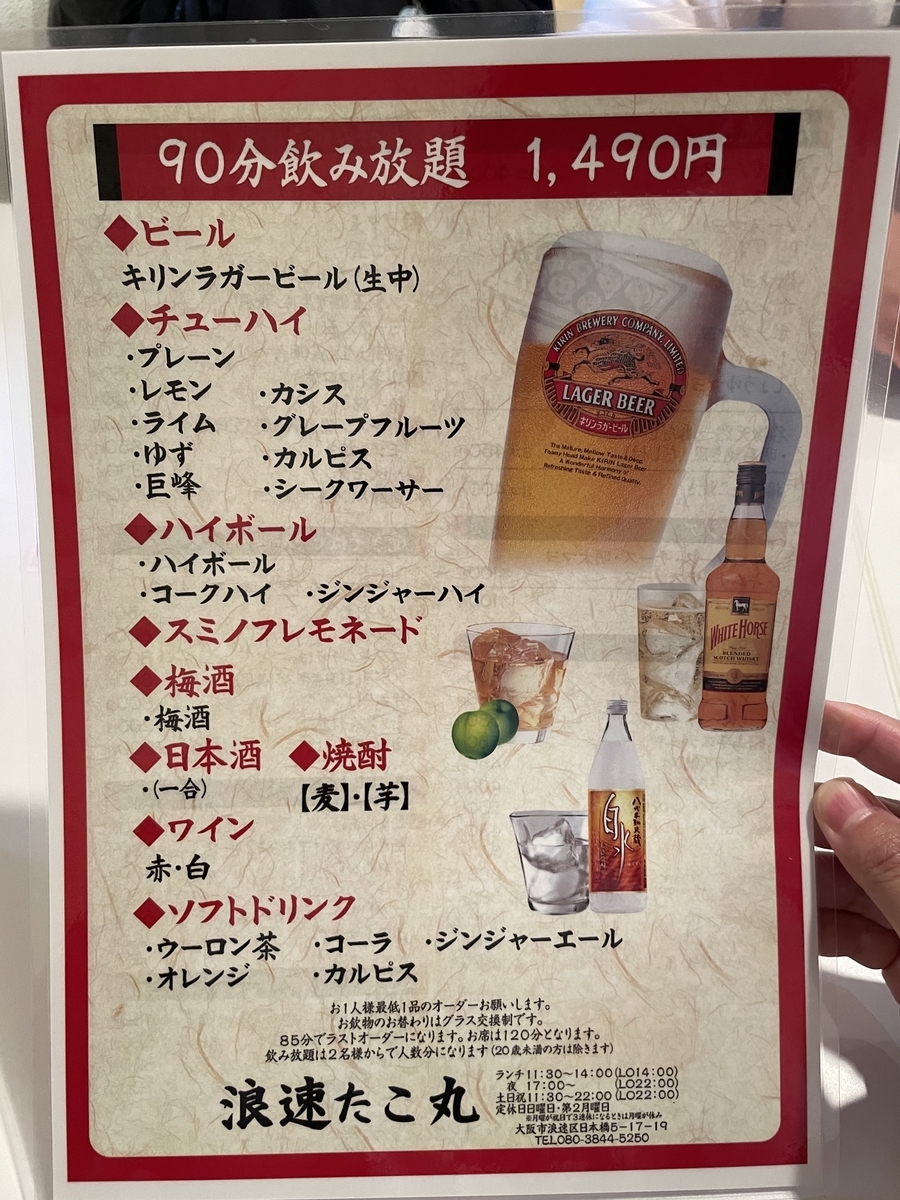 90分飲み放題 1,490円
◆ビール
キリンラガービール(生中)
◆チューハイ
・プレーン
・レモン ・カシス
・ライム ・グレープフルーツ
・ゆず ・カルピス
・巨峰 ・シークワーサー
◆ハイボール
・ハイボール
・コークハイ ・ジンジャーハイ
◆スミノフレモネード
◆梅酒
・梅酒
◆日本酒 ◆焼酎
・(一合) 【麦】・【芋】
◆ワイン
赤・白
◆ソフトドリンク
・ウーロン茶 ・コーラ ・ジンジャーエール
・オレンジ ・カルピス
お1人様最低1品のオーダーお願いします。
お飲物のお替わりはグラス交換制です。
85分でラストオーダーになります。お席は120分となります。
飲み放題は2名様からで人数分になります(20歳未満の方は除きます)
浪速たこ丸
ランチ11:30~14:00(LO14:00)
夜 17:00~ (LO22:00)
土日祝11:30~22:00(LO22:00)
定休日日曜日・第2月曜日
※月曜が祝日で3連休になるときは月曜が休み
大阪市浪速区日本橋5-17-19
TEL080-3844-5250
KIRIN BREWERY COMPANY, LIMITED
LAGER BEER
キリンラガービール
The Mature, Mellow Taste & Deep,
Foamy Head Make KIRIN Lager Beer
A Wonderful Harmony of
Refreshing Taste & Refined Quality.
WHITE HORSE
BLENDED
SCOTCH WHISKY
白水